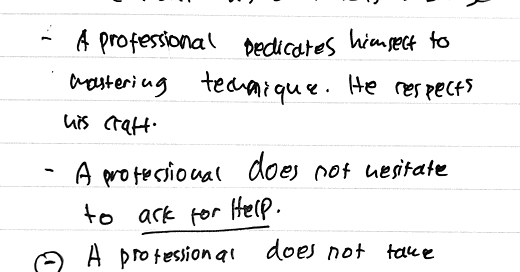 - A professional Dedicates himself to
mastering technique. He respects
his craft.
- A professional does not hesitate
to ask for Help.
- A professional does not take